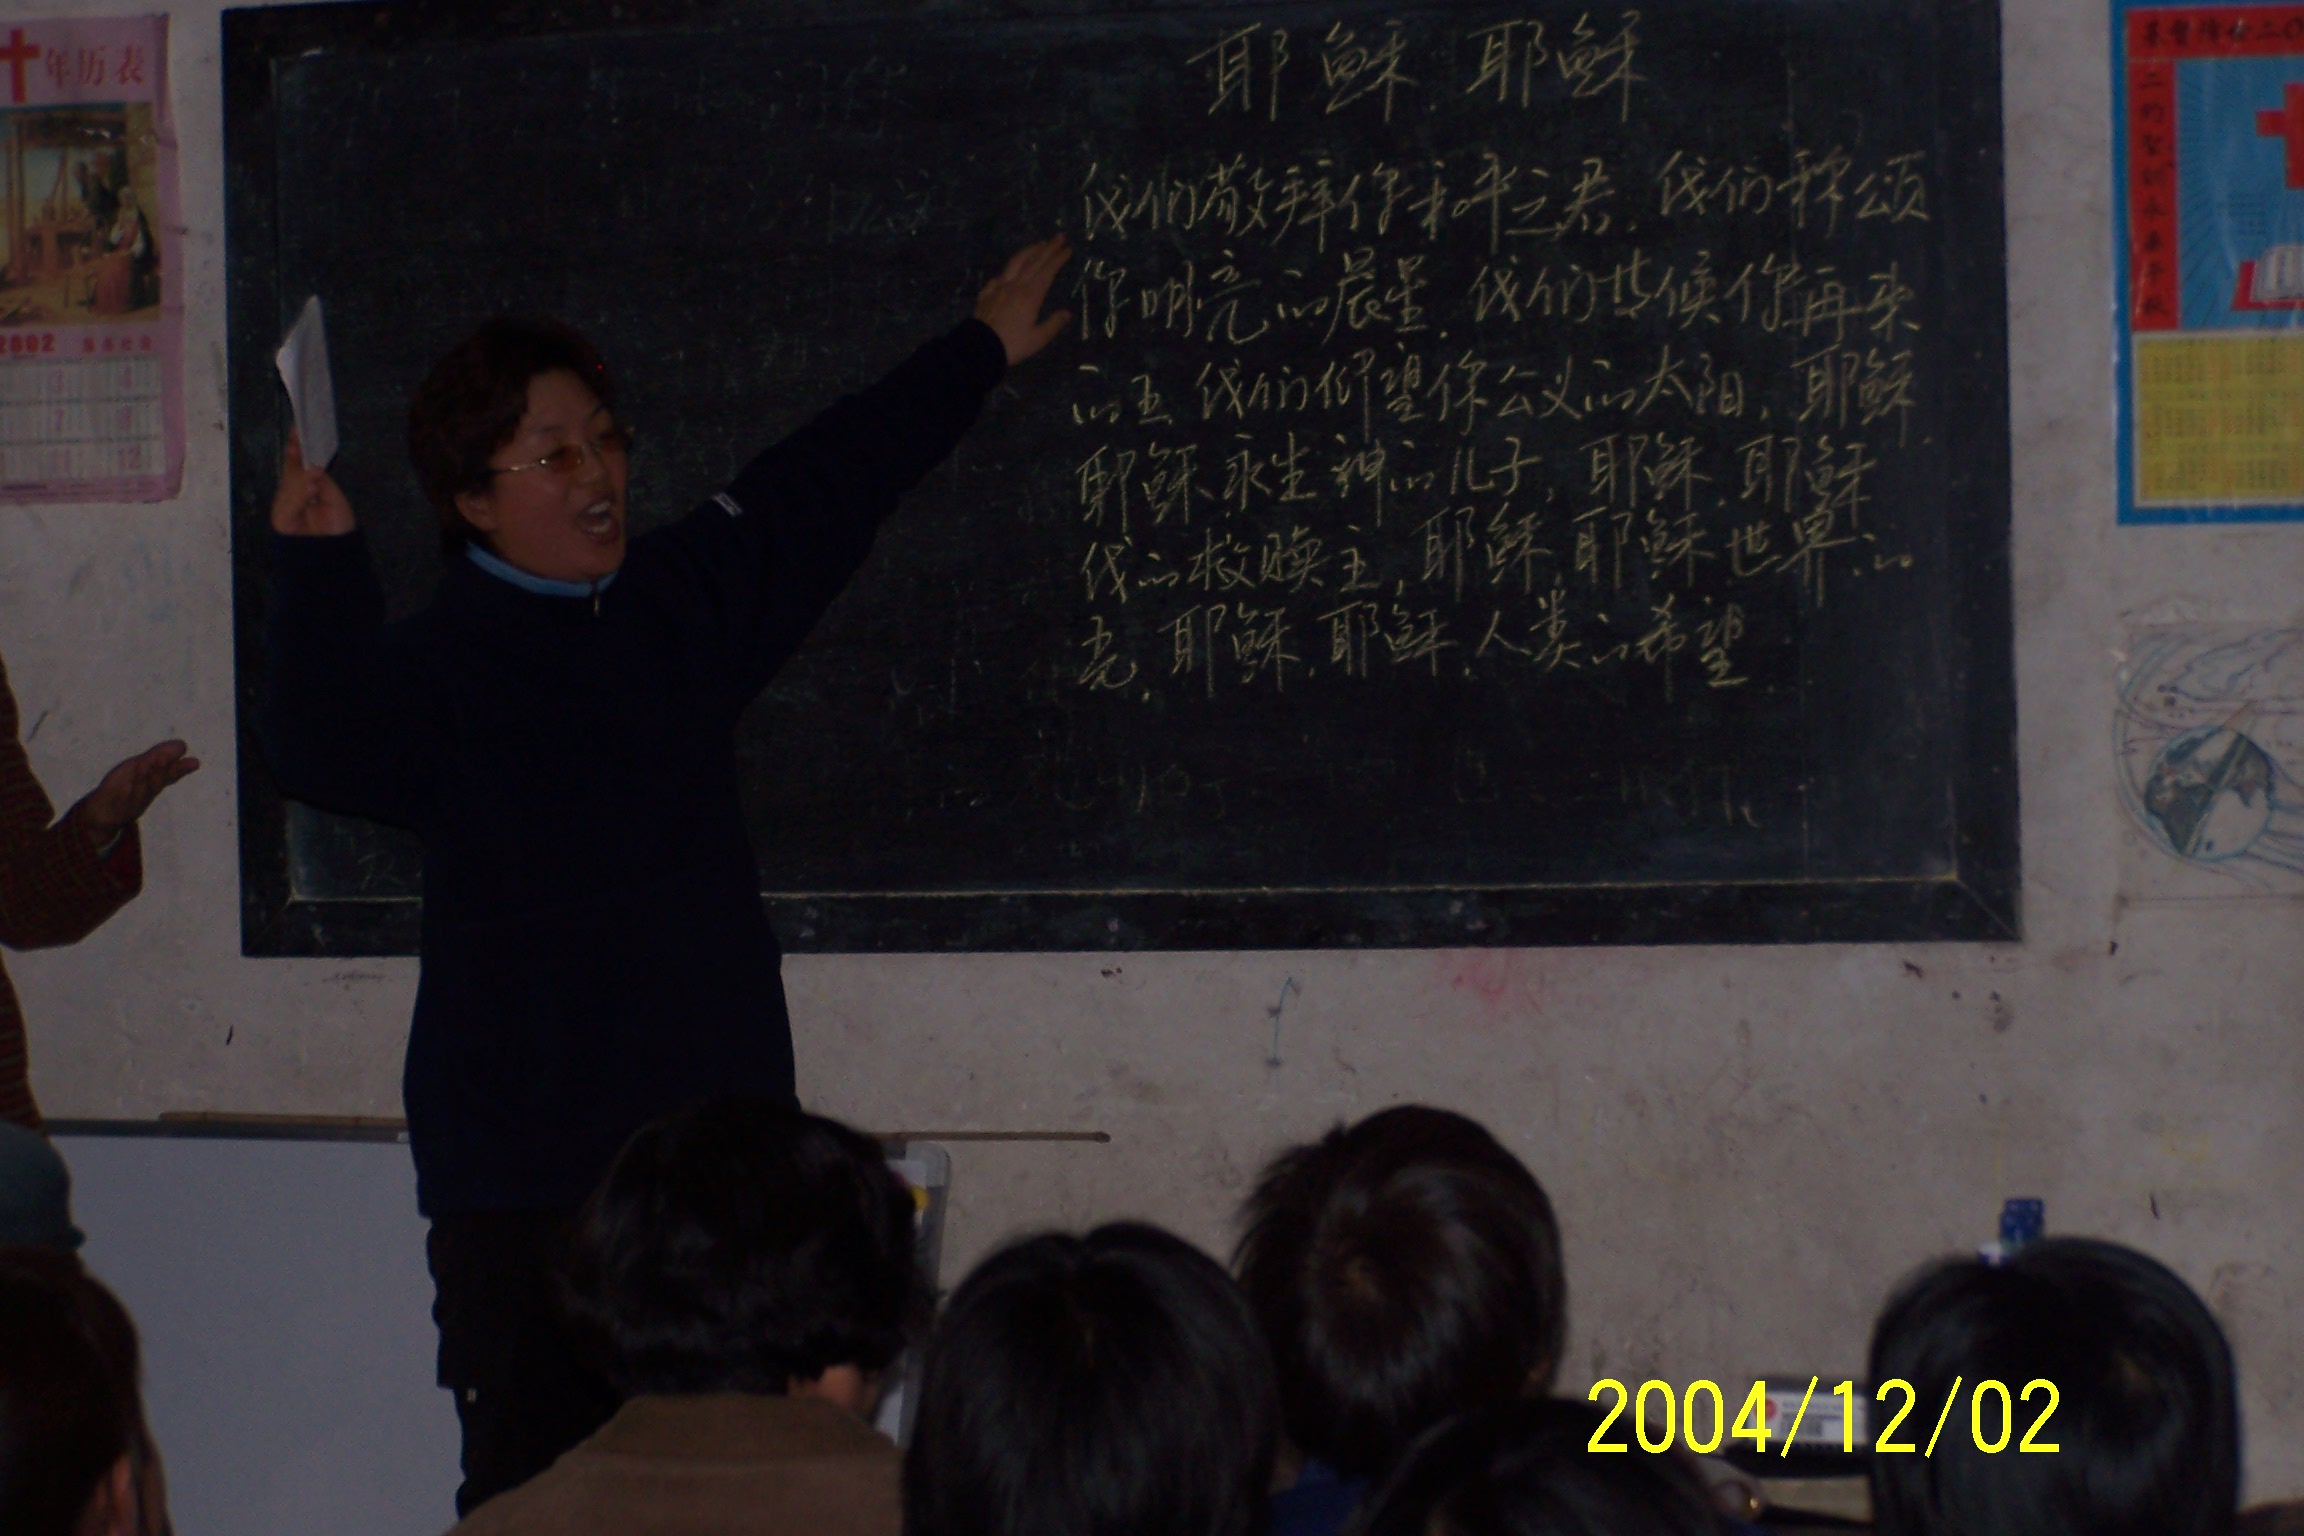 耶稣.耶稣
我们敬拜你和平之君.我们称颂
你明亮的晨星.我们等候你再来
的王.我们仰望你公义的太阳,耶稣.
耶稣.永生神的儿子,耶稣.耶稣
我的救赎主,耶稣,耶稣.世界的
光.耶稣.耶稣.人类的希望
年历表
2002
2004/12/02